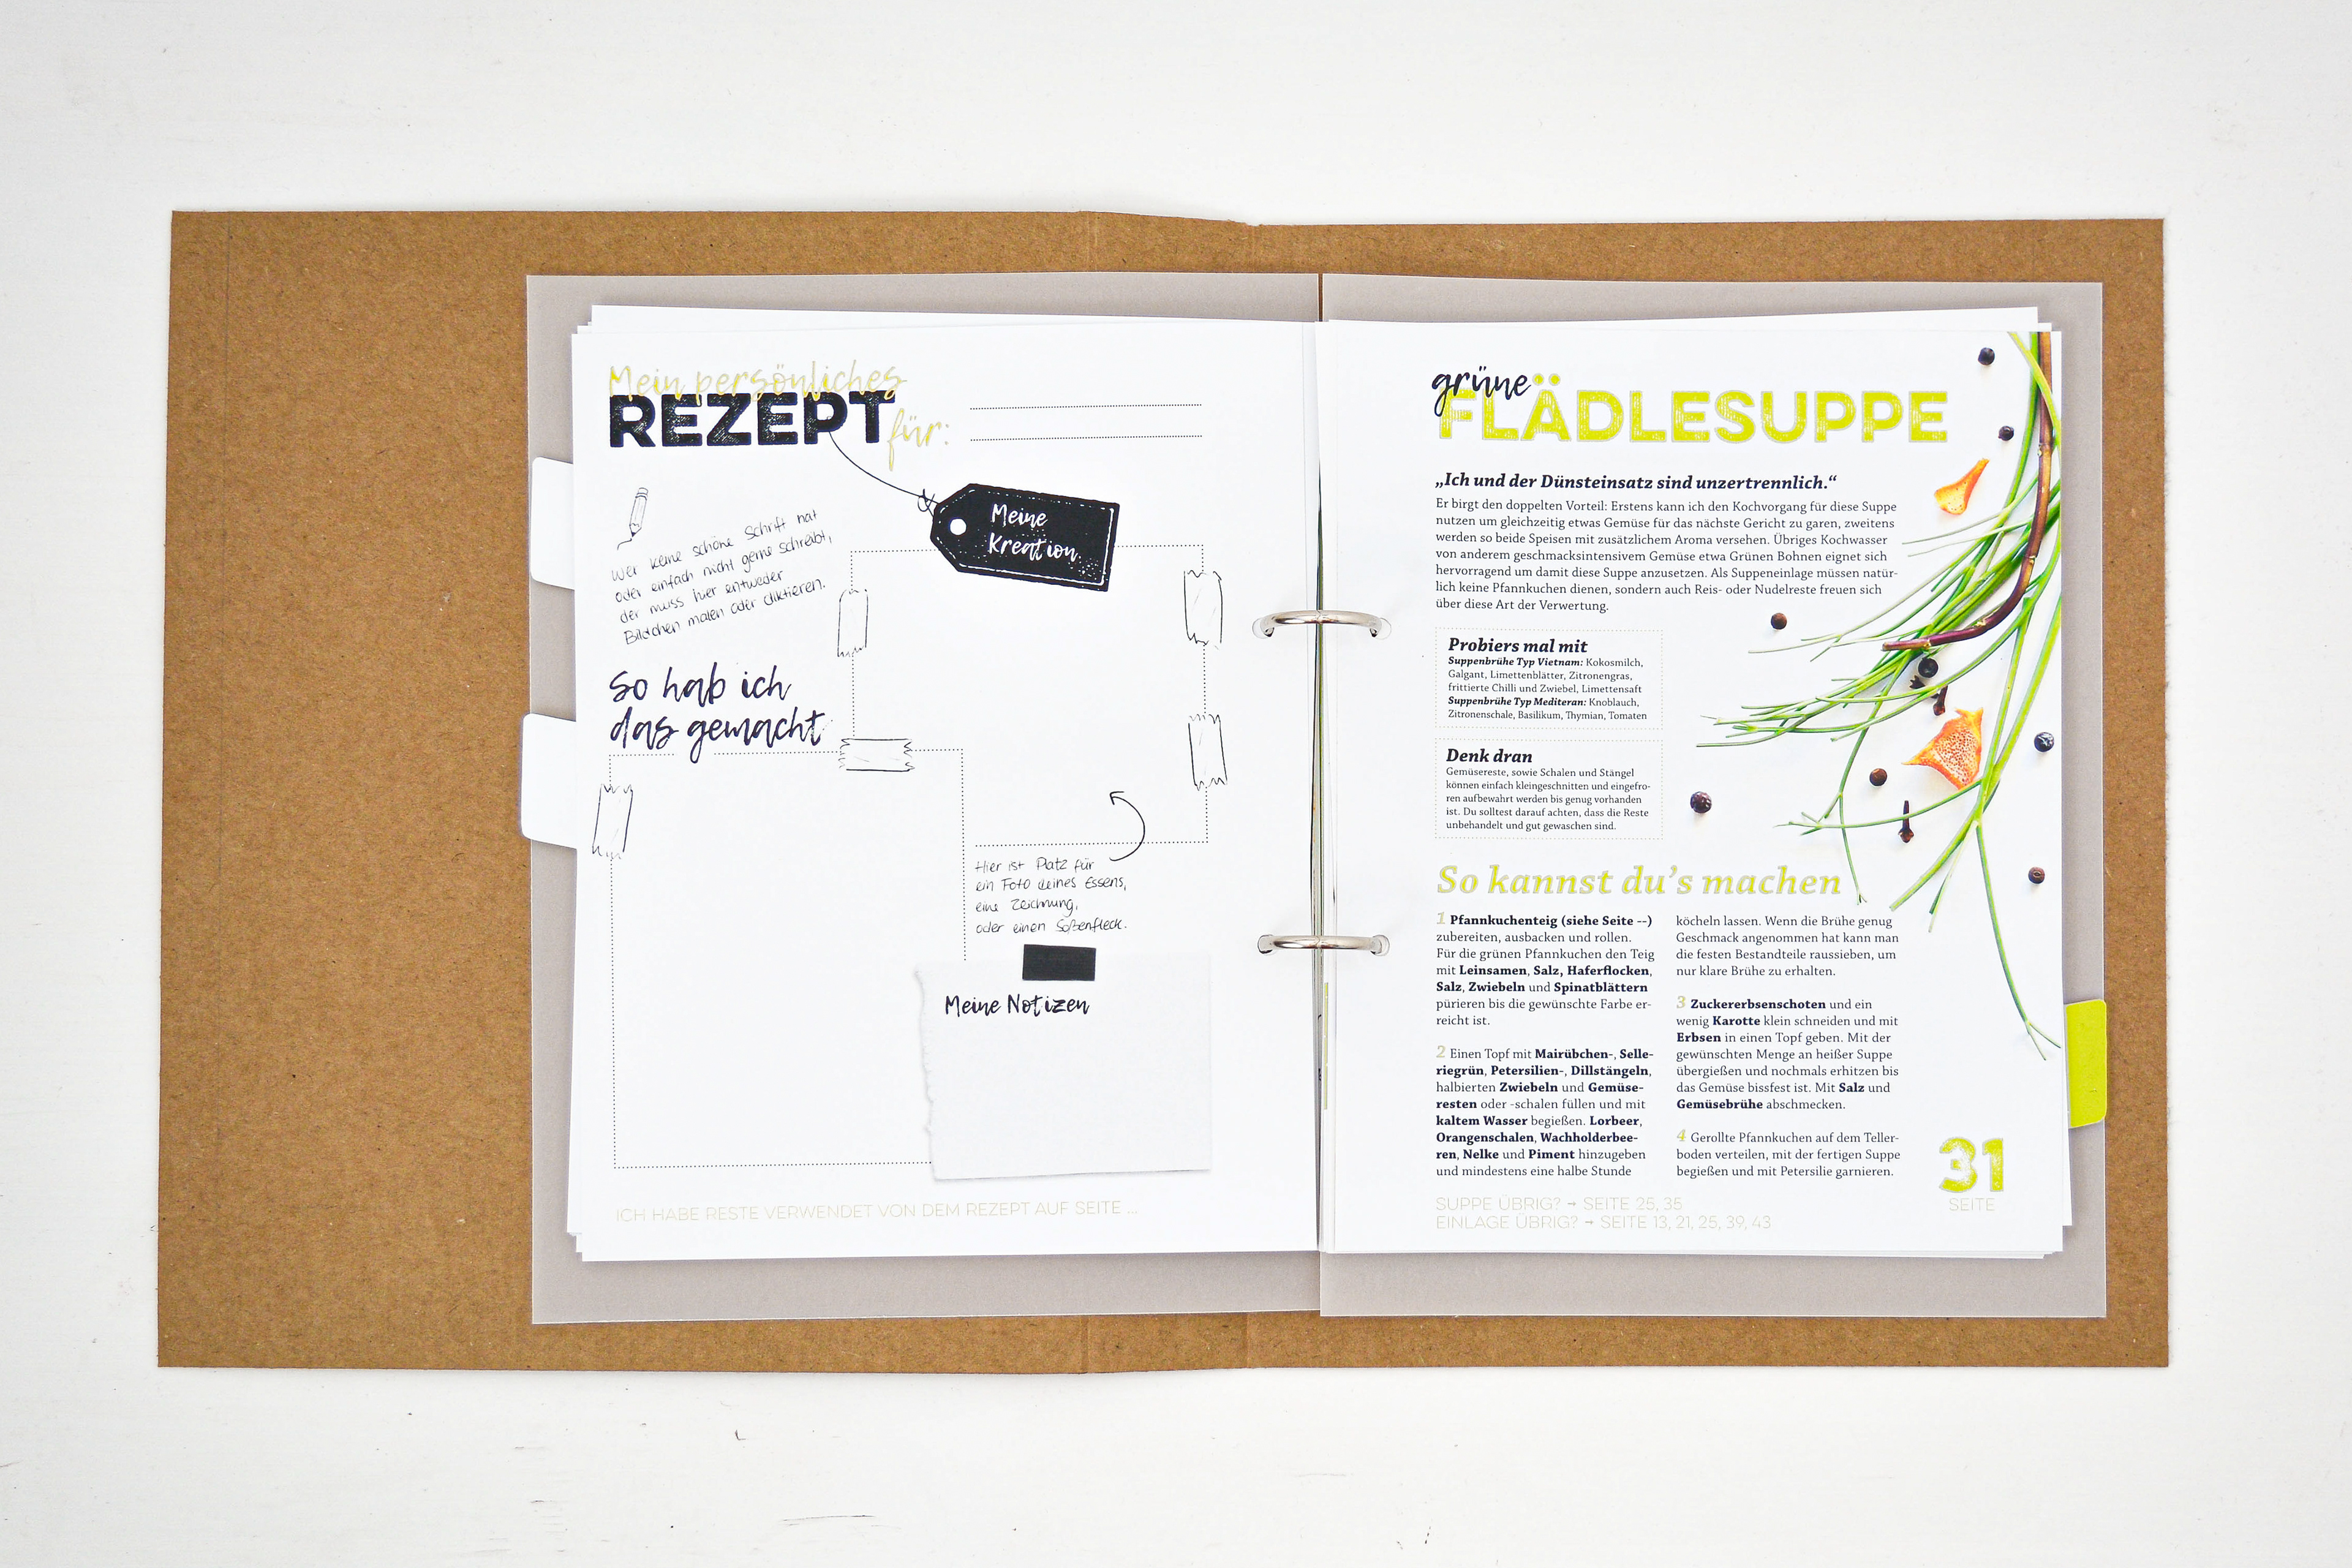 Mein persönliches
REZEPT
für:
Meine
Kreation
Wer keine schöne Schrift hat
oder einfach nicht gerne schreibt,
der muss hier entweder
Bildchen malen oder diktieren.
So hab ich
das gemacht
Hier ist Platz für
ein Foto deines Essens,
eine Zeichnung,
oder einen Soßenfleck.
Meine Notizen
ICH HABE RESTE VERWENDET VON DEM REZEPT AUF SEITE ...
grüne
FLÄDLESUPPE
„Ich und der Dünsteinsatz sind unzertrennlich.“
Er birgt den doppelten Vorteil: Erstens kann ich den Kochvorgang für diese Suppe
nutzen um gleichzeitig etwas Gemüse für das nächste Gericht zu garen, zweitens
werden so beide Speisen mit zusätzlichem Aroma versehen. Übriges Kochwasser
von anderem geschmacksintensivem Gemüse etwa Grünen Bohnen eignet sich
hervorragend um damit diese Suppe anzusetzen. Als Suppeneinlage müssen natür-
lich keine Pfannkuchen dienen, sondern auch Reis- oder Nudelreste freuen sich
über diese Art der Verwertung.
Probiers mal mit
Suppenbrühe Typ Vietnam: Kokosmilch,
Galgant, Limettenblätter, Zitronengras,
frittierte Chilli und Zwiebel, Limettensaft
Suppenbrühe Typ Mediteran: Knoblauch,
Zitronenschale, Basilikum, Thymian, Tomaten
Denk dran
Gemüsereste, sowie Schalen und Stängel
können einfach kleingeschnitten und eingefro-
ren aufbewahrt werden bis genug vorhanden
ist. Du solltest darauf achten, dass die Reste
unbehandelt und gut gewaschen sind.
So kannst du’s machen
1 Pfannkuchenteig (siehe Seite --)
zubereiten, ausbacken und rollen.
Für die grünen Pfannkuchen den Teig
mit Leinsamen, Salz, Haferflocken,
Salz, Zwiebeln und Spinatblättern
pürieren bis die gewünschte Farbe er-
reicht ist.
2 Einen Topf mit Mairübchen-, Selle-
riegrün, Petersilien-, Dillstängeln,
halbierten Zwiebeln und Gemüse-
resten oder -schalen füllen und mit
kaltem Wasser begießen. Lorbeer,
Orangenschalen, Wachholderbee-
ren, Nelke und Piment hinzugeben
und mindestens eine halbe Stunde
köcheln lassen. Wenn die Brühe genug
Geschmack angenommen hat kann man
die festen Bestandteile raussieben, um
nur klare Brühe zu erhalten.
3 Zuckererbsenschoten und ein
wenig Karotte klein schneiden und mit
Erbsen in einen Topf geben. Mit der
gewünschten Menge an heißer Suppe
übergießen und nochmals erhitzen bis
das Gemüse bissfest ist. Mit Salz und
Gemüsebrühe abschmecken.
4 Gerollte Pfannkuchen auf dem Teller-
boden verteilen, mit der fertigen Suppe
begießen und mit Petersilie garnieren.
SUPPE ÜBRIG? → SEITE 25, 35
EINLAGE ÜBRIG? → SEITE 13, 21, 25, 39, 43
31
SEITE